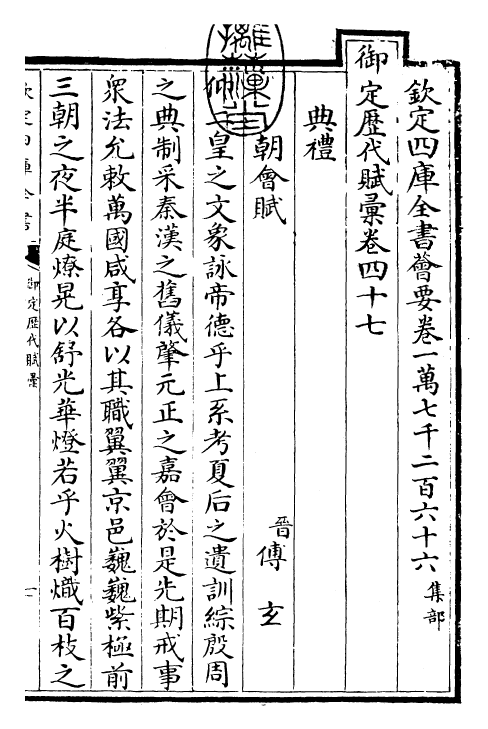 欽定四庫全書薈要卷一萬七千二百六十六 集部
御定歷代賦彙卷四十七
典禮
朝會賦
晉傅玄
仰 皇之文象詠帝德乎上系考夏后之遺訓綜殷周
之典制采秦漢之舊儀肇元正之嘉會於是先期戒事
衆法允敕萬國咸享各以其職翼翼京邑巍巍紫極前
三朝之夜半庭燎晃以舒光華燈若乎火樹熾百枝之
欽定四庫全書
御定歷代賦彙
一